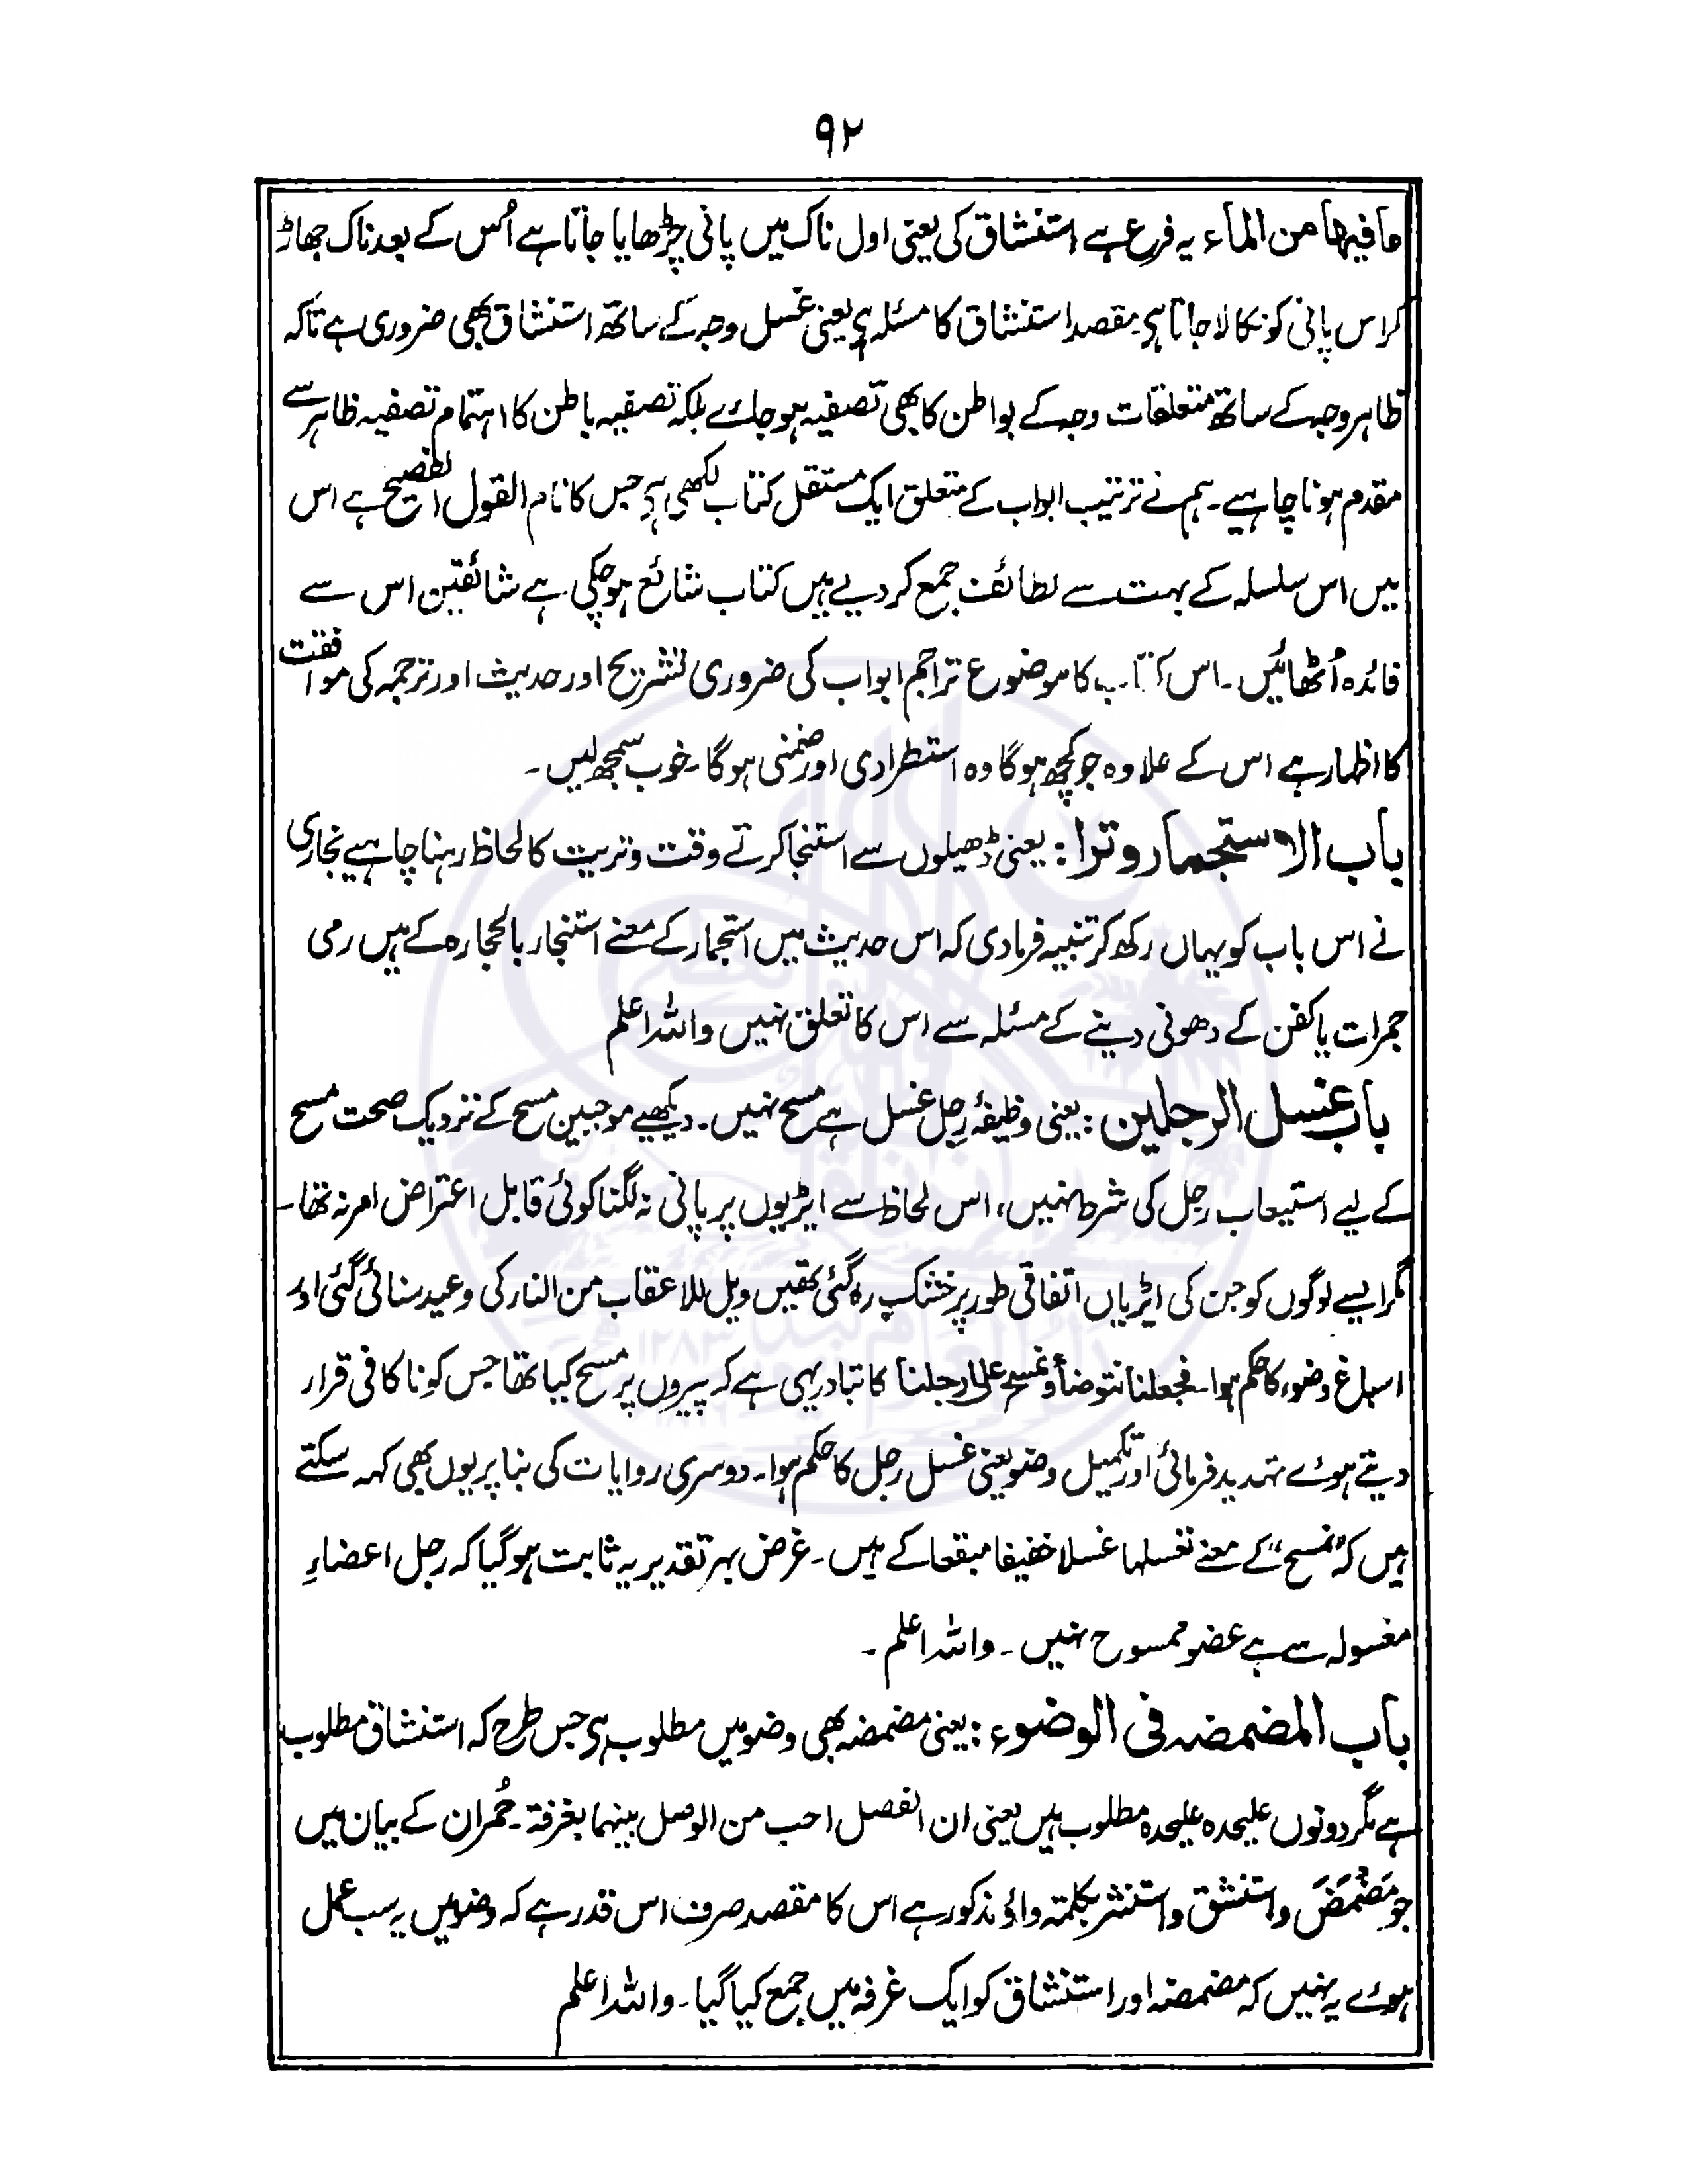 ۹۲
مافیہا من الماء یہ فرع ہے استنشاق کی یعنی اول ناک میں پانی چڑھایا جاتا ہے اُس کے بعد ناک جھاڑ
کر اس پانی کو نکالا جاتا ہے۔ مقصد استنشاق کا مسئلہ ہے یعنی غسل وجہ کے ساتھ استنشاق بھی ضروری ہے تاکہ
ظاہر وجہ کے ساتھ متعلقات وجہ کے بواطن کا بھی تصفیہ ہو جائے بلکہ تصفیہ باطن کا اہتمام تصفیہ ظاہر سے
مقدم ہونا چاہیے۔ ہم نے ترتیب ابواب کے متعلق ایک مستقل کتاب لکھی ہے جس کا نام القول الفصیح ہے اس
میں اس سلسلہ کے بہت سے لطائف جمع کر دیے ہیں کتاب شائع ہو چکی ہے شائقین اس سے
فائدہ اُٹھائیں۔ اس کتاب کا موضوع تراجم ابواب کی ضروری تشریح اور حدیث اور ترجمہ کی موافقت
کا اظہار ہے اس کے علاوہ جو کچھ ہوگا وہ استطرادی اور ضمنی ہوگا۔ خوب سمجھ لیں۔
باب الاستجمار وترا: یعنی ڈھیلوں سے استنجا کرتے وقت وتریت کا لحاظ رہنا چاہیے بخاری
نے اس باب کو یہاں رکھ کر تنبیہ فرما دی کہ اس حدیث میں استجمار کے معنے استنجار بالحجارہ کے ہیں رمی
جمرات یا کفن کے دھونی دینے کے مسئلہ سے اس کا تعلق نہیں واللہ اعلم
باب غسل الرجلین: یعنی وظیفۂ رِجل غسل ہے مسح نہیں۔ دیکھیے موجبین مسح کے نزدیک صحت مسح
کے لیے استیعاب رِجل کی شرط نہیں، اس لحاظ سے ایڑیوں پر پانی نہ لگنا کوئی قابل اعتراض امر نہ تھا۔
مگر ایسے لوگوں کو جن کی ایڑیاں اتفاقی طور پر خشک رہ گئی تھیں ویل للاعقاب من النار کی وعید سنائی گئی اور
اسباغ وضوء کا حکم ہوا۔ فجعلنا نتوضأ ونمسح علی ارجلنا کا تبادر یہی ہے کہ پیروں پر مسح کیا تھا جس کو ناکافی قرار
دیتے ہوئے تہدید فرمائی اور تکمیل وضو یعنی غسل رجل کا حکم ہوا۔ دوسری روایات کی بنا پر یوں بھی کہہ سکتے
ہیں کہ "نمسح" کے معنے نغسلہا غسلا خفیفا مبقعا کے ہیں۔ غرض بہر تقدیر یہ ثابت ہو گیا کہ رِجل اعضاءِ
مغسولہ سے ہے عضو ممسوح نہیں۔ واللہ اعلم۔
باب المضمضہ فی الوضوء: یعنی مضمضہ بھی وضو میں مطلوب ہے جس طرح کہ استنشاق مطلوب
ہے مگر دونوں علیحدہ علیحدہ مطلوب ہیں یعنی ان الفصل احب من الوصل بینہما بغرفۃ۔ حُمران کے بیان میں
جو مَضْمَضَ واستنشق واستنثر بکلمتہ واؤ مذکور ہے اس کا مقصد صرف اس قدر ہے کہ وضو میں یہ سب عمل
ہوئے یہ نہیں کہ مضمضہ اور استنشاق کو ایک غرفہ میں جمع کیا گیا۔ واللہ اعلم